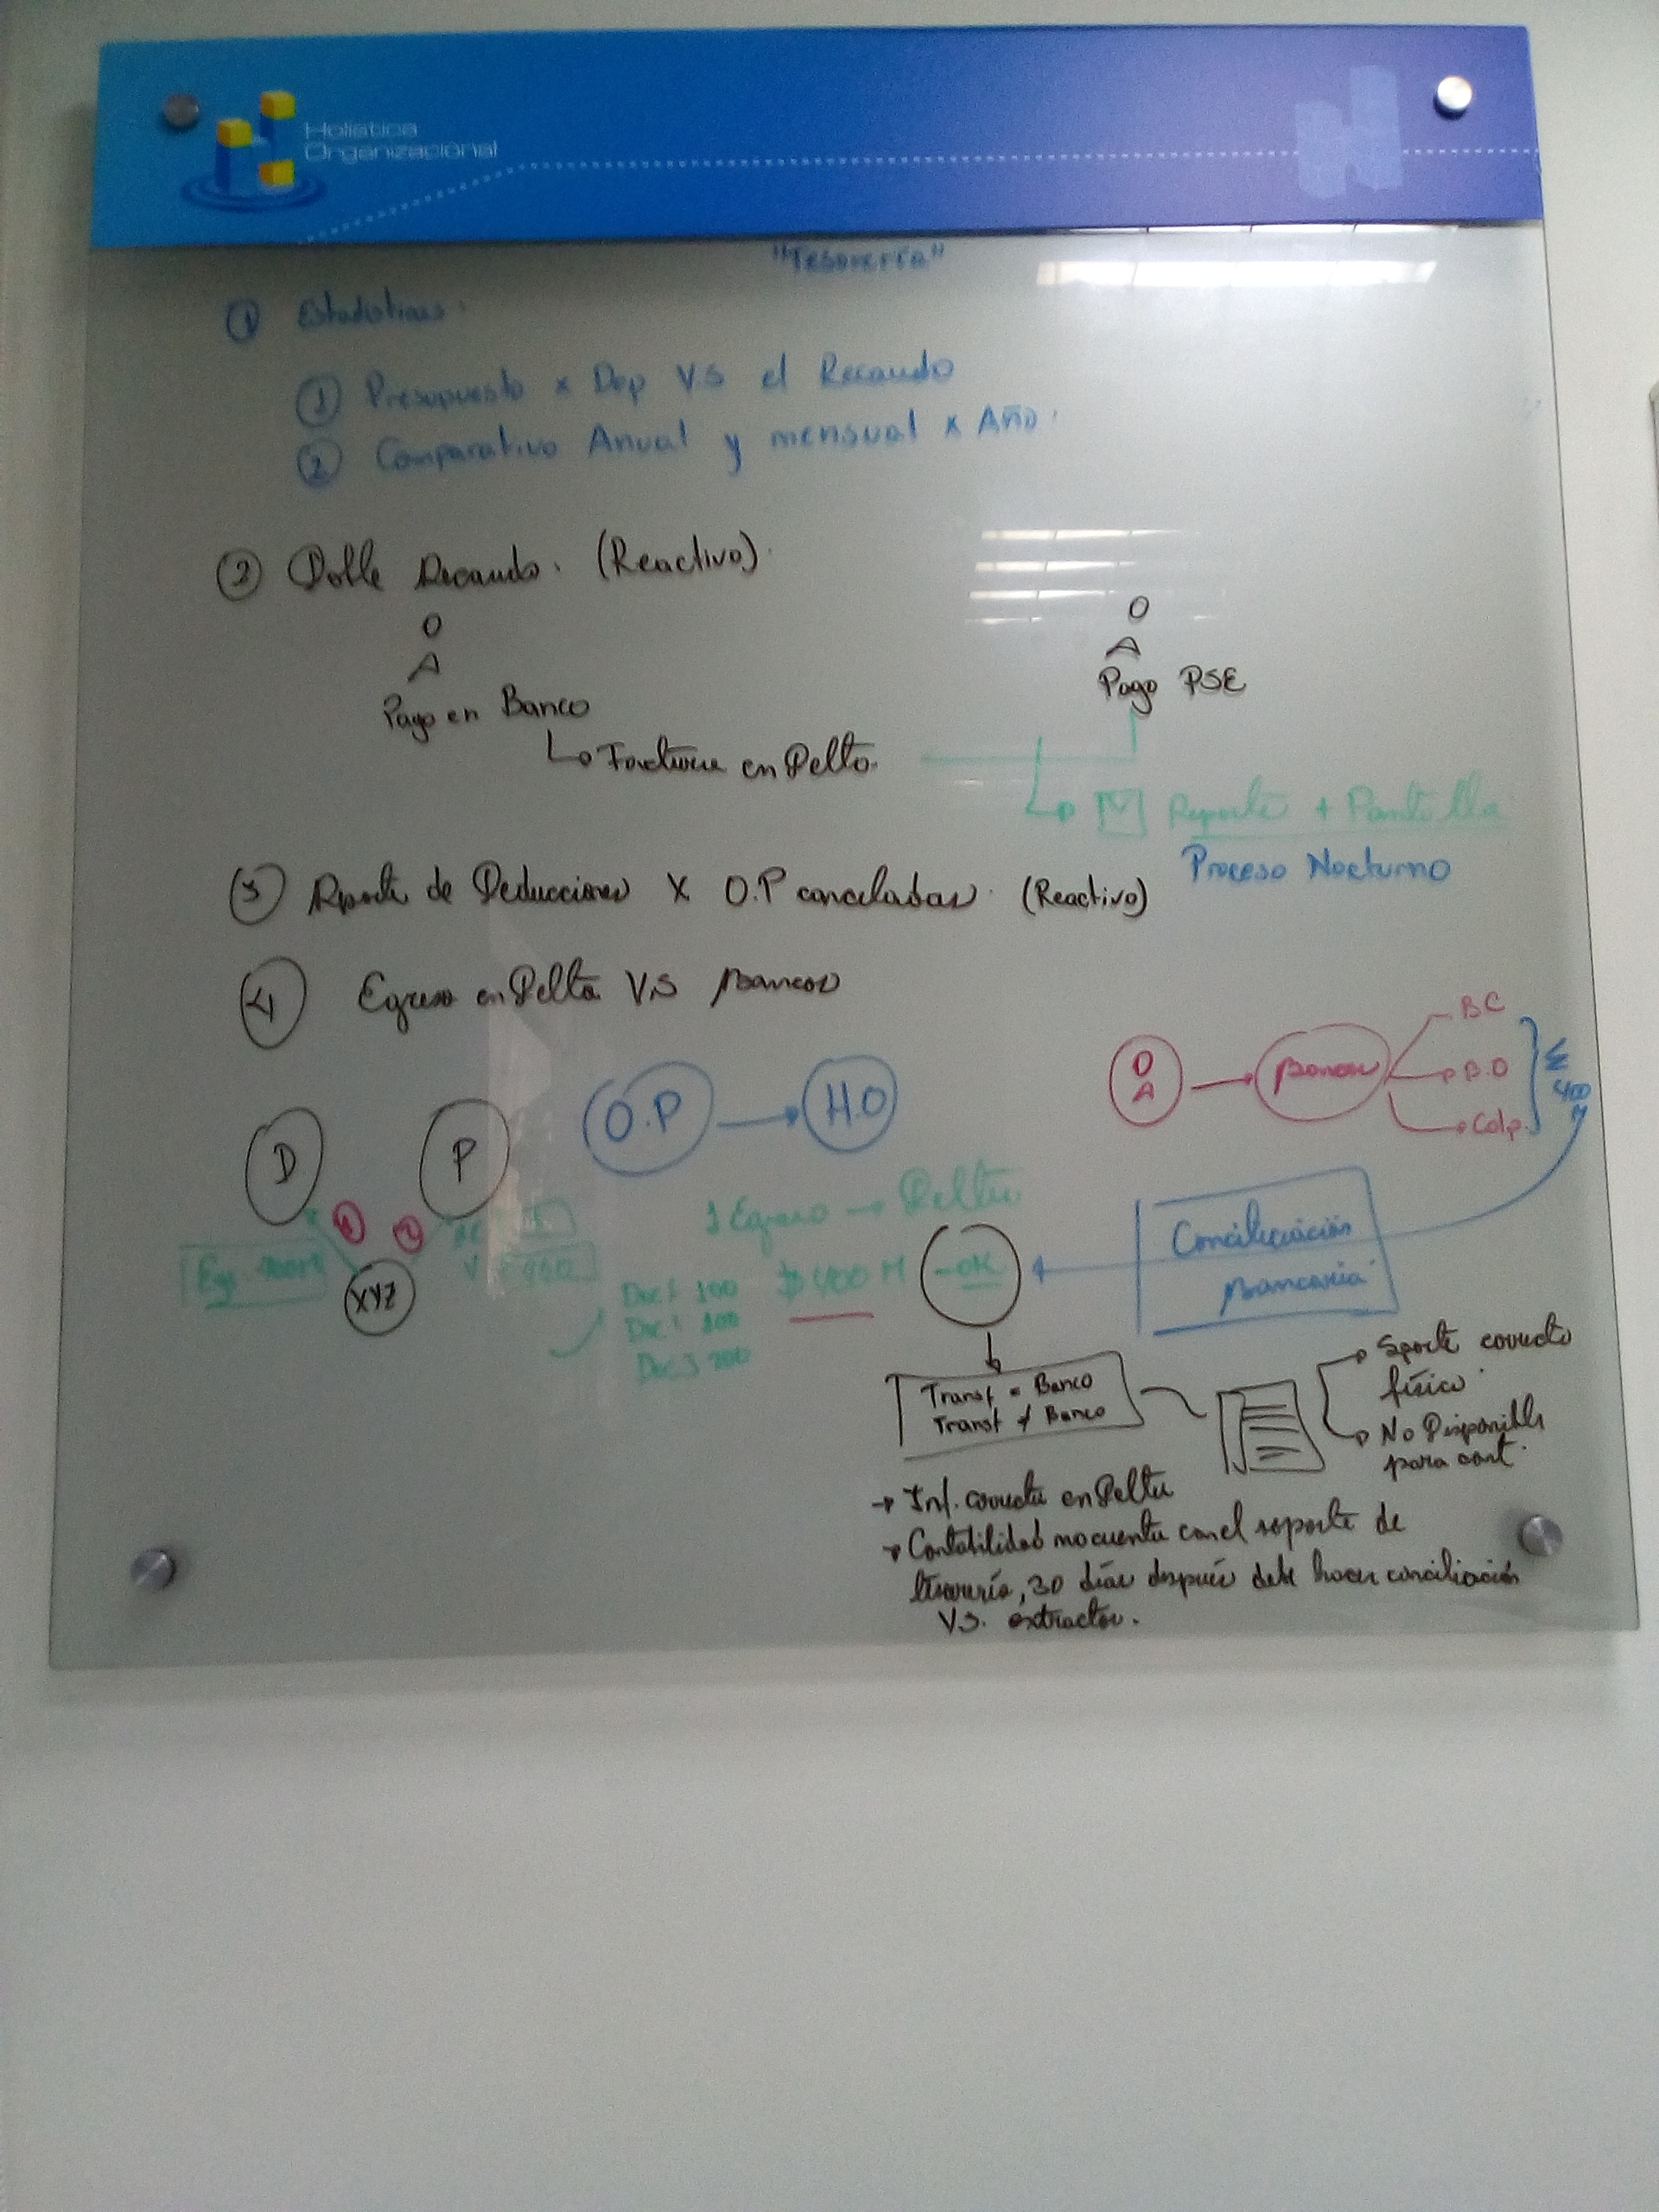 Holística
Organizacional
"Tesorería"
① Estadísticas.
① Presupuesto x Dep V.S el Recaudo
② Comparativo Anual y mensual x Año.
② Doble Recaudo. (Reactivo).
O
A
Pago en Banco
Facture en Delta
O
A
Pago PSE
Reporte + Pantalla
Proceso Nocturno
③ Reporte de Deducciones X O.P canceladas. (Reactivo)
④ Egreso en Delta V.S Bancos
D
P
① ②
XYZ
O.P → H.O
O
A
Bancos
BC
B.O
Colp.
400
M
1 Egreso → Delta
$400 M - OK
Doc 1 100
Doc 2 100
Doc 3 200
Conciliación
Bancaria
Transf = Banco
Transf ≠ Banco
Soporte correcto
físico.
No Disponible
para cont.
→ Inf. correcta en Delta
→ Contabilidad no cuenta con el soporte de
tesorería, 30 días después debe hacer conciliación
VS. extractos.